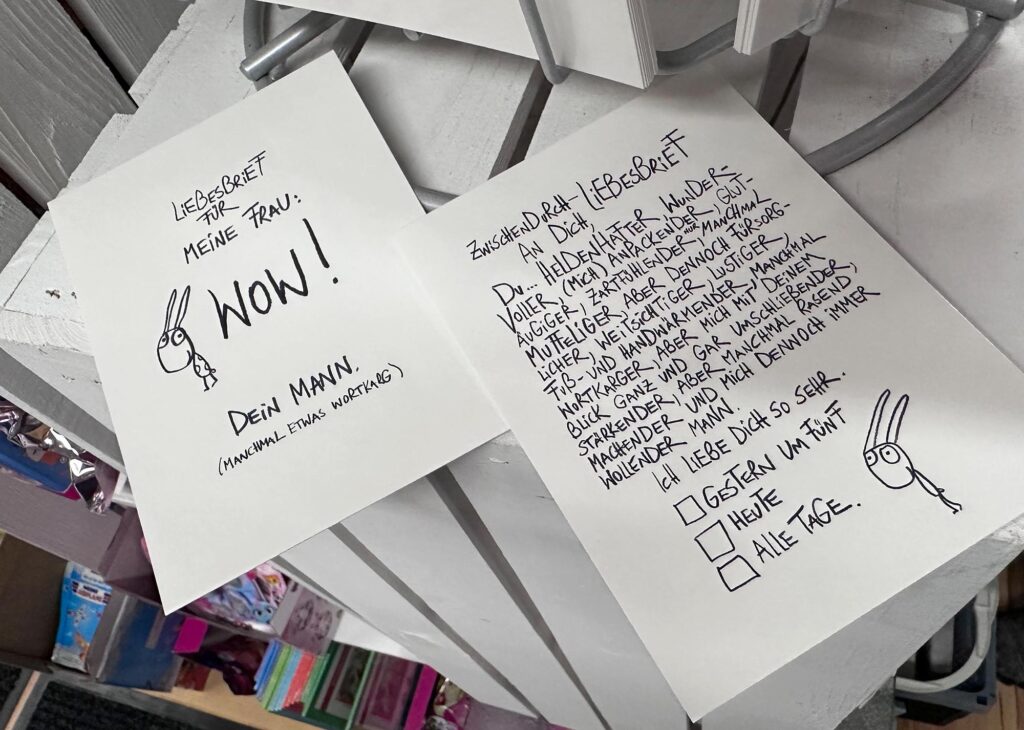 LIEBESBRIEF
FÜR
MEINE FRAU:
WOW!
DEIN MANN.
(MANCHMAL ETWAS WORTKARG)
ZWISCHENDURCH-LIEBESBRIEF
AN DICH,
DU... HELDENHAFTER WUNDER-
VOLLER, (MICH) ANPACKENDER, GLUT-
ÄUGIGER, ZARTFÜHLENDER, NUR MANCHMAL
MUFFELIGER, ABER DENNOCH FÜRSORG-
LICHER, WEITSICHTIGER, LUSTIGER,
FUß- UND HANDWÄRMENDER, MANCHMAL
WORTKARGER, ABER MICH MIT DEINEM
BLICK GANZ UND GAR UMSCHLIEßENDER,
STÄRKENDER, ABER MANCHMAL RASEND
MACHENDER UND MICH DENNOCH IMMER
WOLLENDER MANN.
ICH LIEBE DICH SO SEHR.
GESTERN UM FÜNF
HEUTE
ALLE TAGE.